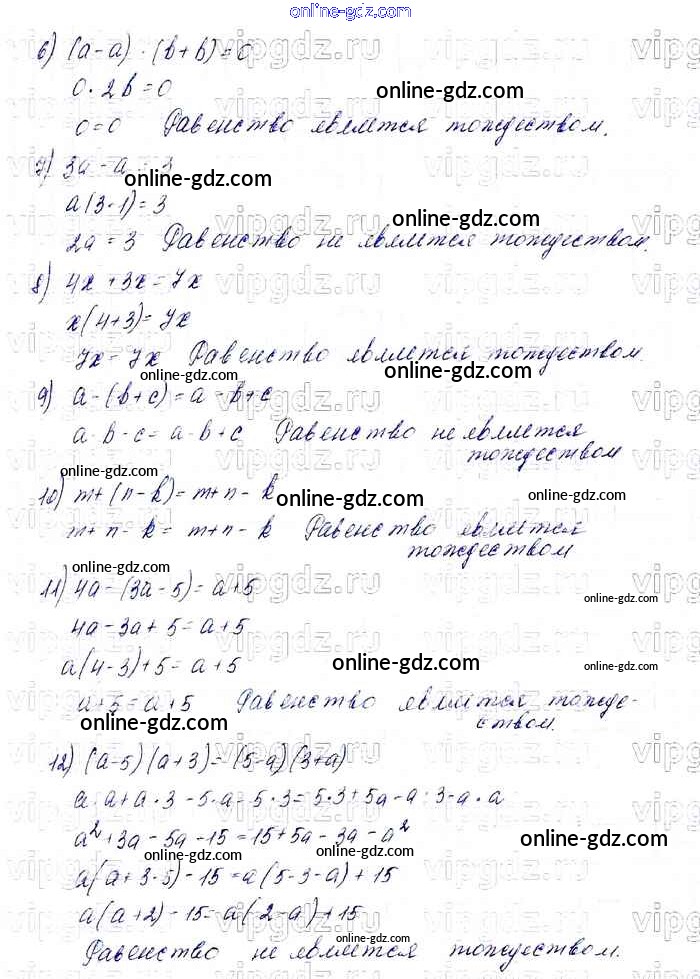 online-gdz.com
6) (a-a)·(b+b)=0
0·2b=0
online-gdz.com
0=0 Равенство является тождеством.
7) 3a-a=3
online-gdz.com
a(3-1)=3
online-gdz.com
2a=3 Равенство не является тождеством.
8) 4x+3x=7x
x(4+3)=7x
7x=7x Равенство является тождеством.
online-gdz.com
online-gdz.com
9) a-(b+c)=a-b+c
a-b-c=a-b+c Равенство не является
тождеством
online-gdz.com
10) m+(n-k)=m+n-k
online-gdz.com
online-gdz.com
m+n-k=m+n-k Равенство является
тождеством
online-gdz.com
11) 4a-(3a-5)=a+5
online-gdz.com
4a-3a+5=a+5
a(4-3)+5=a+5
online-gdz.com
online-gdz.com
a+5=a+5 Равенство является тожде-
ством.
online-gdz.com
12) (a-5)(a+3)=(5-a)(3+a)
a·a+a·3-5·a-5·3=5·3+5a-a·3-a·a
a²+3a-5a-15=15+5a-3a-a²
online-gdz.com
online-gdz.com
online-gdz.com
a(a+3-5)-15=a(5-3-a)+15
a(a+2)-15=a(2-a)+15
online-gdz.com
Равенство не является тождеством.
online-gdz.com
vipgdz.ru